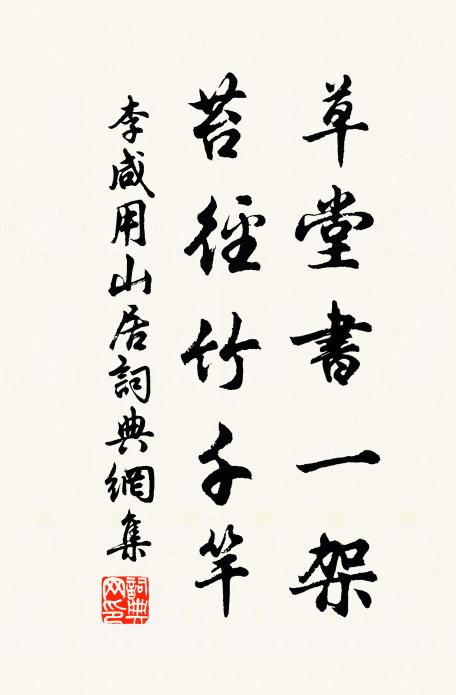 草堂書一架
苔徑竹千竿
李咸用山居詞典網集
詞典网印